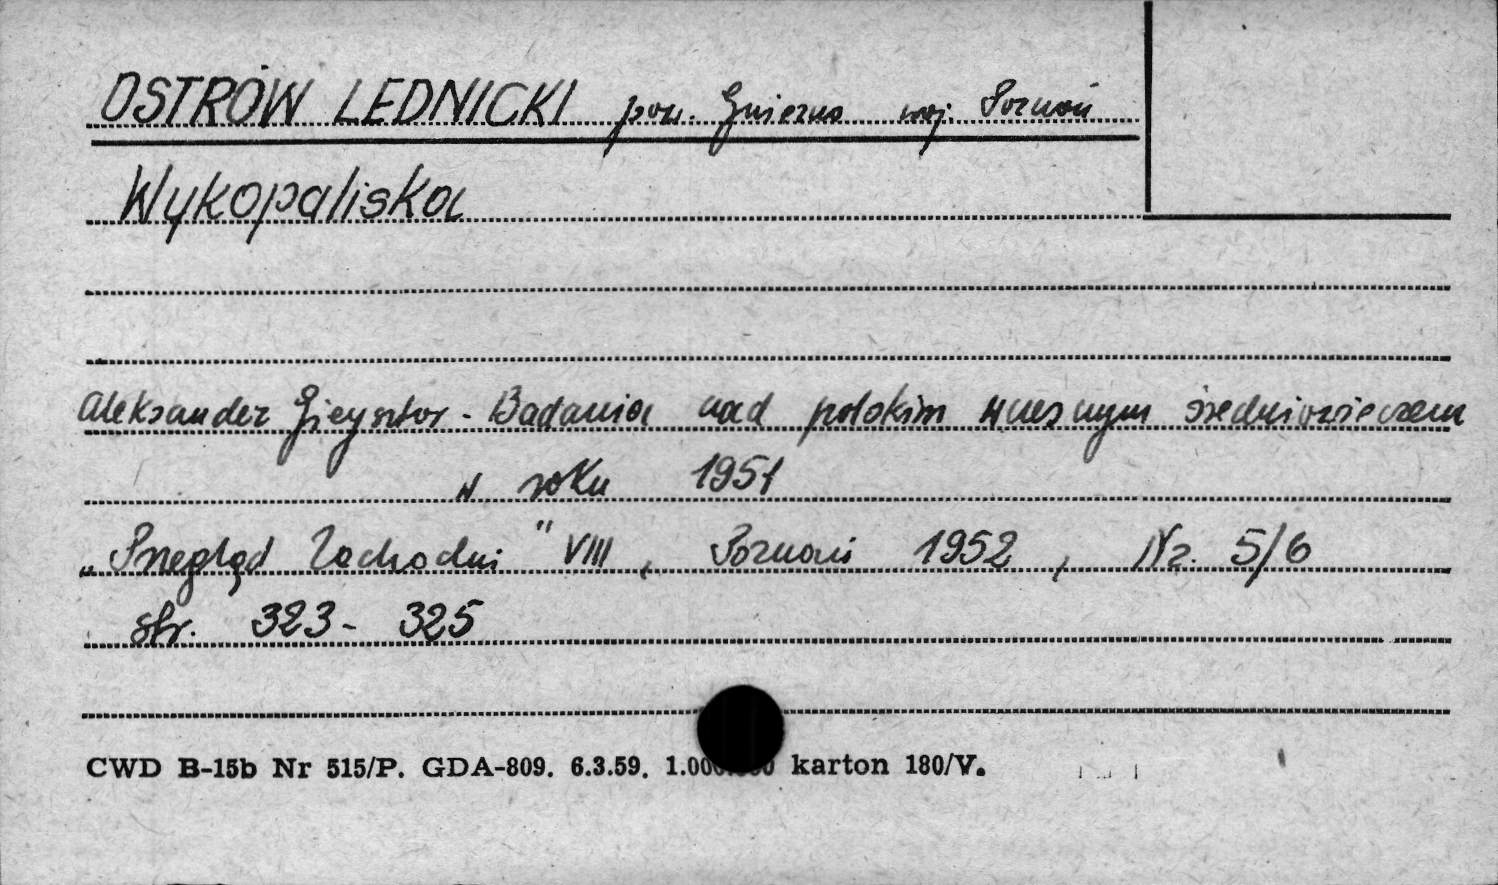 OSTRÓW LEDNICKI pow. Gniezno woj. Poznań
Wykopaliska
Aleksander Gieysztor - Badania nad polskim wczesnym średniowieczem
w roku 1951
„Przegląd Zachodni" VIII, Poznań 1952, Nr. 5/6
str. 323 - 325
CWD B-15b Nr 515/P. GDA-809. 6.3.59. karton 180/V.